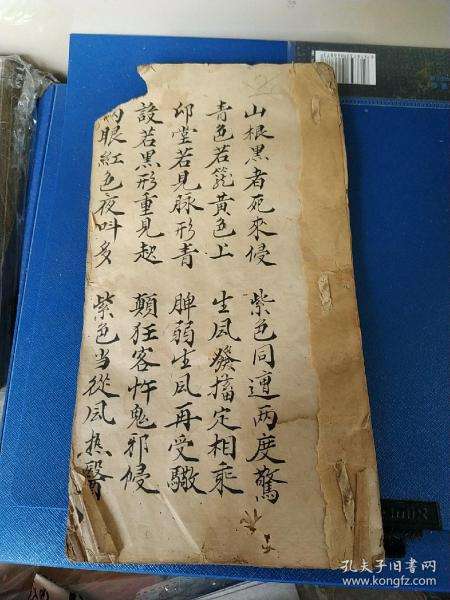 山根黑者死來侵 紫色同遭两度驚
青色若籠黃色上 生风發搐定相乘
印堂若見脉形青 脾弱生风再受驚
設若黑形重見起 顛狂客忤鬼邪侵
眼紅色夜叫多 紫色当從风热醫
孔夫子旧书网
www.kongfz.com